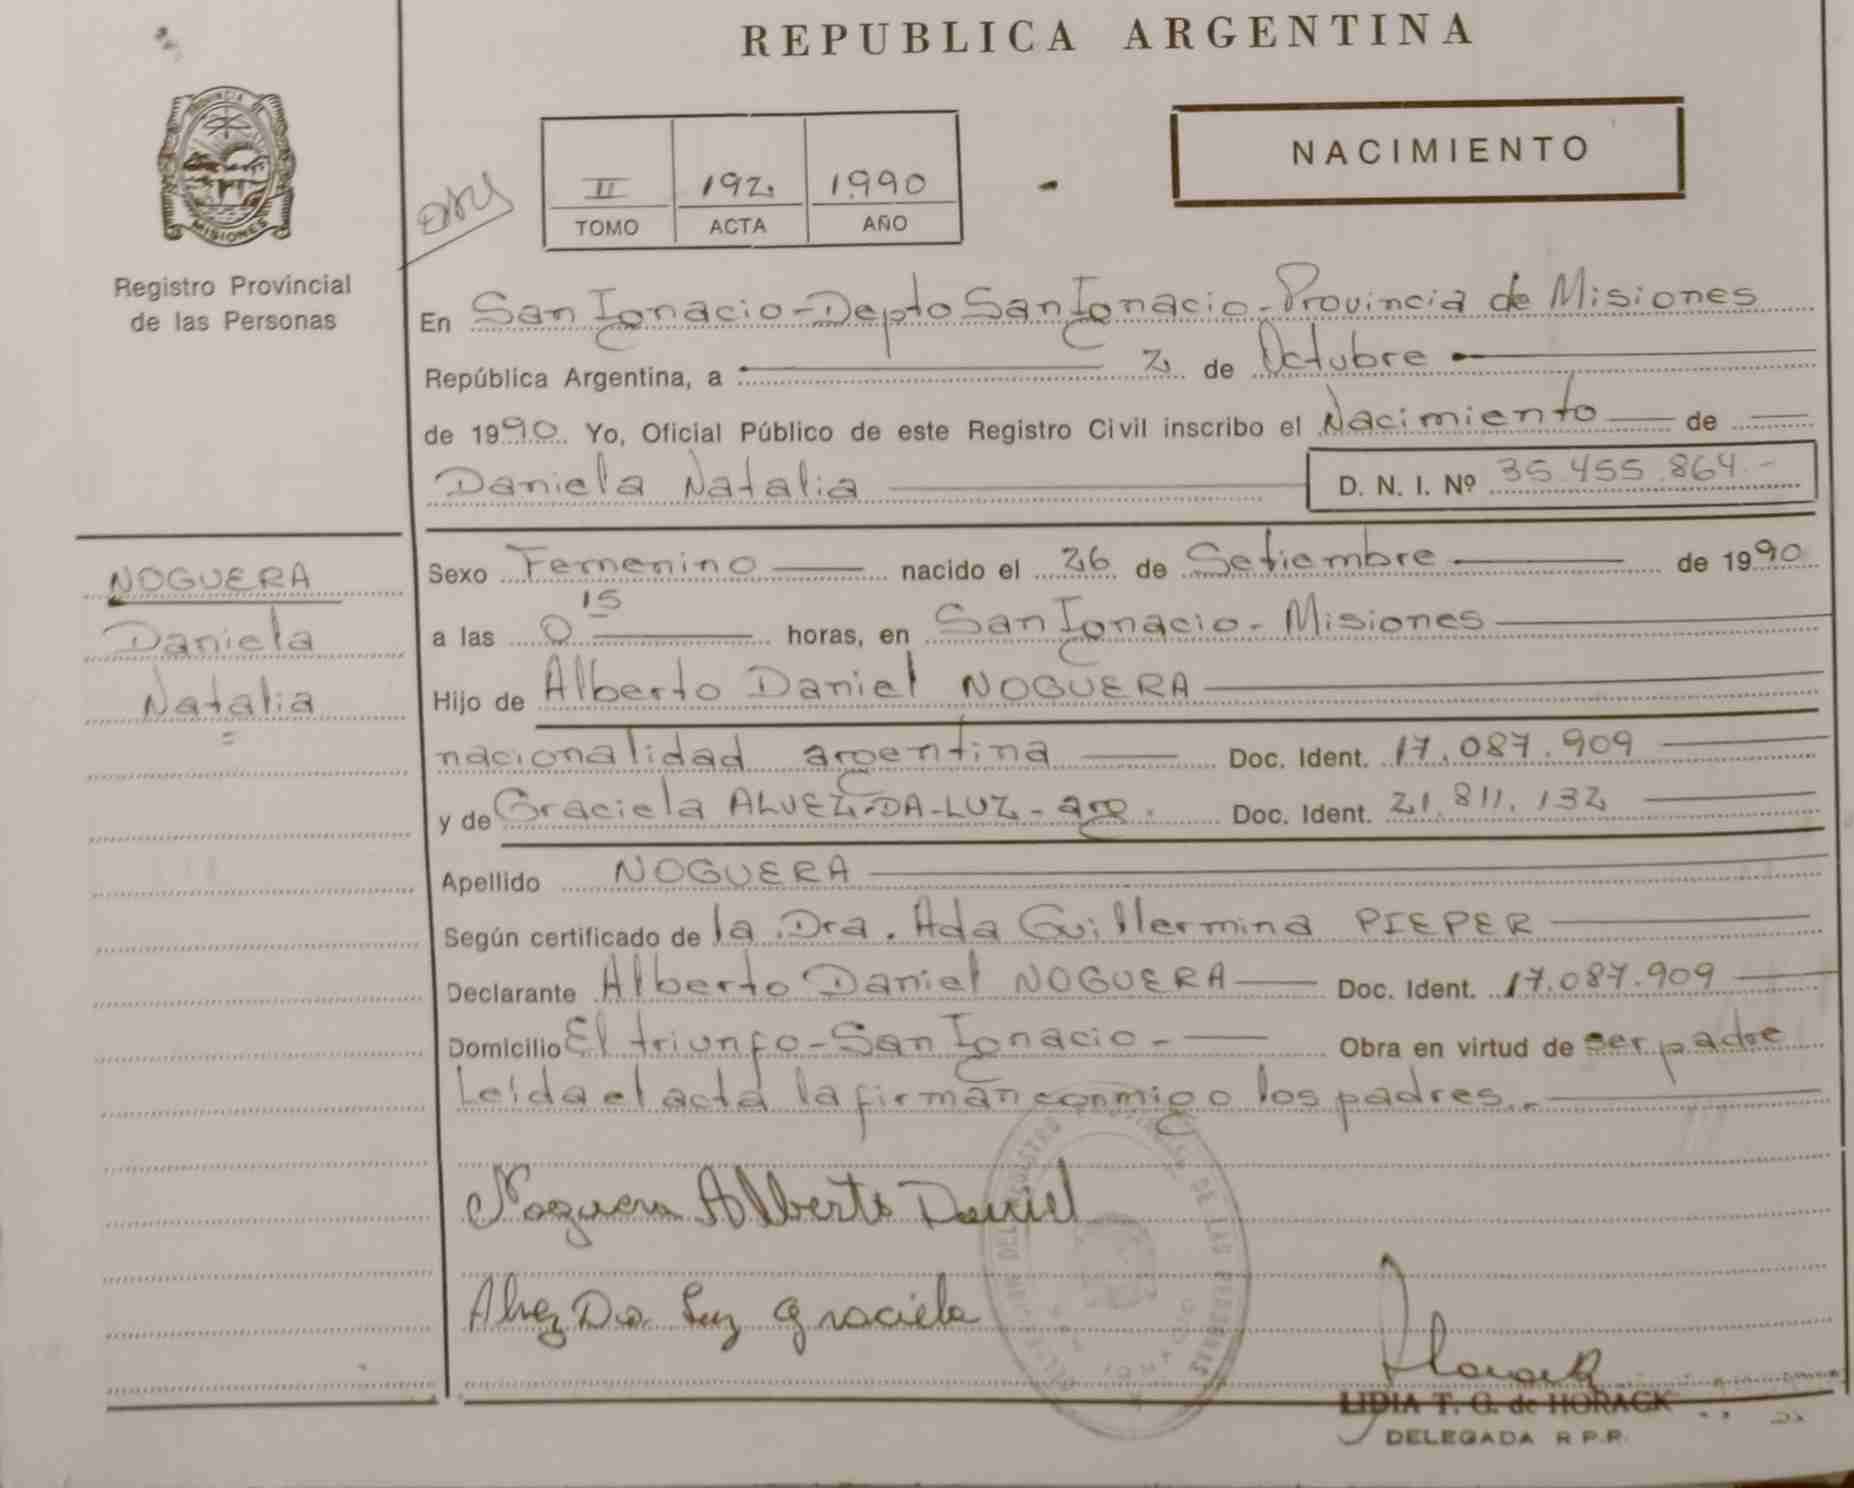 REPUBLICA ARGENTINA
PROVINCIA DE
MISIONES
Registro Provincial
de las Personas
II 192. 1.990
TOMO ACTA AÑO
NACIMIENTO
En San Ignacio-Depto San Ignacio-Provincia de Misiones
República Argentina, a 2 de Octubre
de 1990. Yo, Oficial Público de este Registro Civil inscribo el Nacimiento de
Daniela Natalia
D. N. I. Nº 35.455.864.-
NOGUERA
Daniela
Natalia
Sexo Femenino nacido el 26 de Setiembre de 1990
a las 0 15 horas, en San Ignacio- Misiones
Hijo de Alberto Daniel NOGUERA
nacionalidad argentina Doc. Ident. 17.087.909
y de Graciela ALVEZ-DA-LUZ - arg. Doc. Ident. 21.811.132
Apellido NOGUERA
Según certificado de la Dra. Ada Guillermina PIEPER
Declarante Alberto Daniel NOGUERA Doc. Ident. 17.087.909
Domicilio El triunfo-San Ignacio- Obra en virtud de ser padre
Leída el acta la firman conmigo los padres.-
Noguera Alberto Daniel
Alvez Da Luz Graciela
Horack
LIDIA T. G. de HORACK
DELEGADA R.P.P.